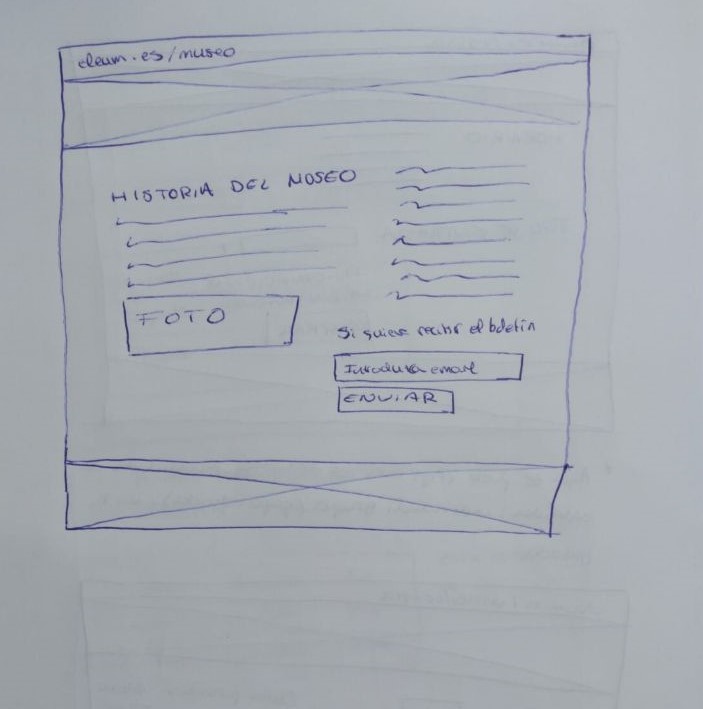 eleum.es/museo
HISTORIA DEL MUSEO
FOTO
Si quiere recibir el boletín
Introduzca email
ENVIAR